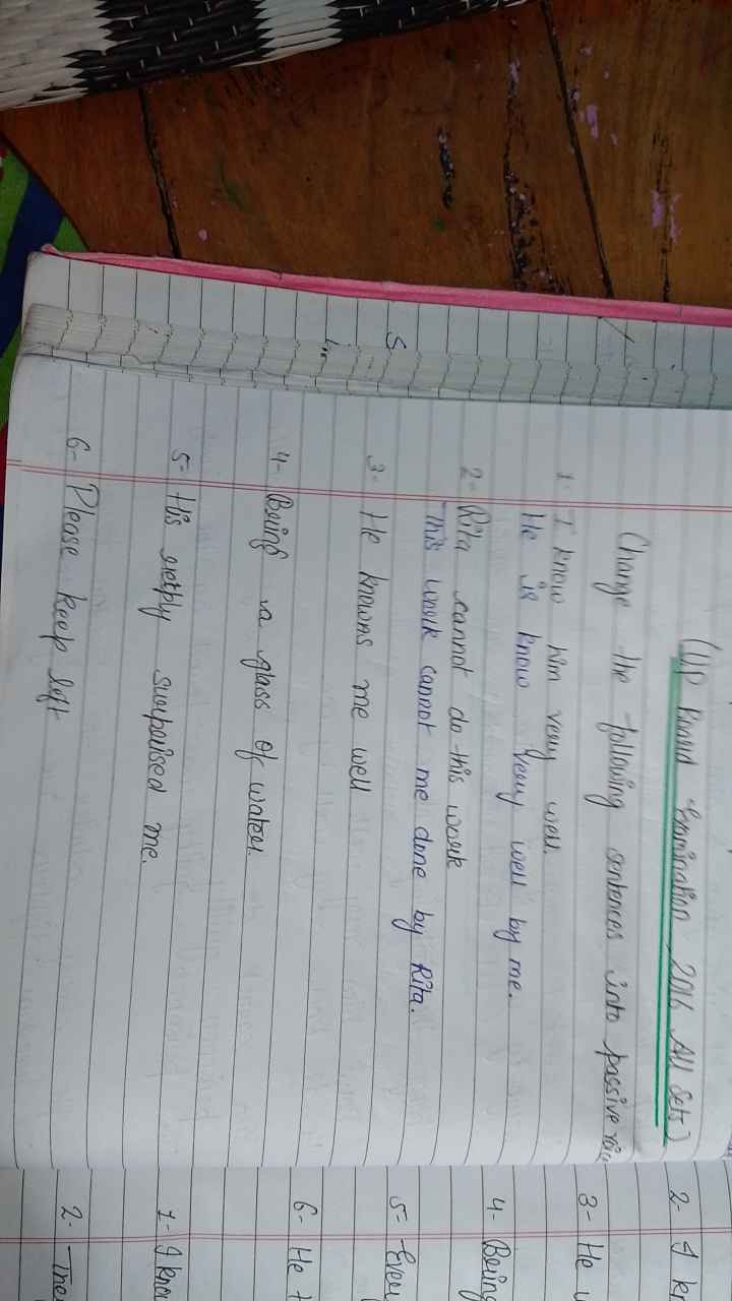 (UP Board Examination 2016 All Sets)
Change the following sentences into passive voic
1. I know him very well.
He is know very well by me.
2- Rita cannot do this work
This work cannot me done by Rita.
3- He knowns me well
4- Being a glass of water.
5- His reply surpaised me.
6- Please keep left
2- I kn
3- He w
4- Being
5- Every
6- He t
1- I know
2- The